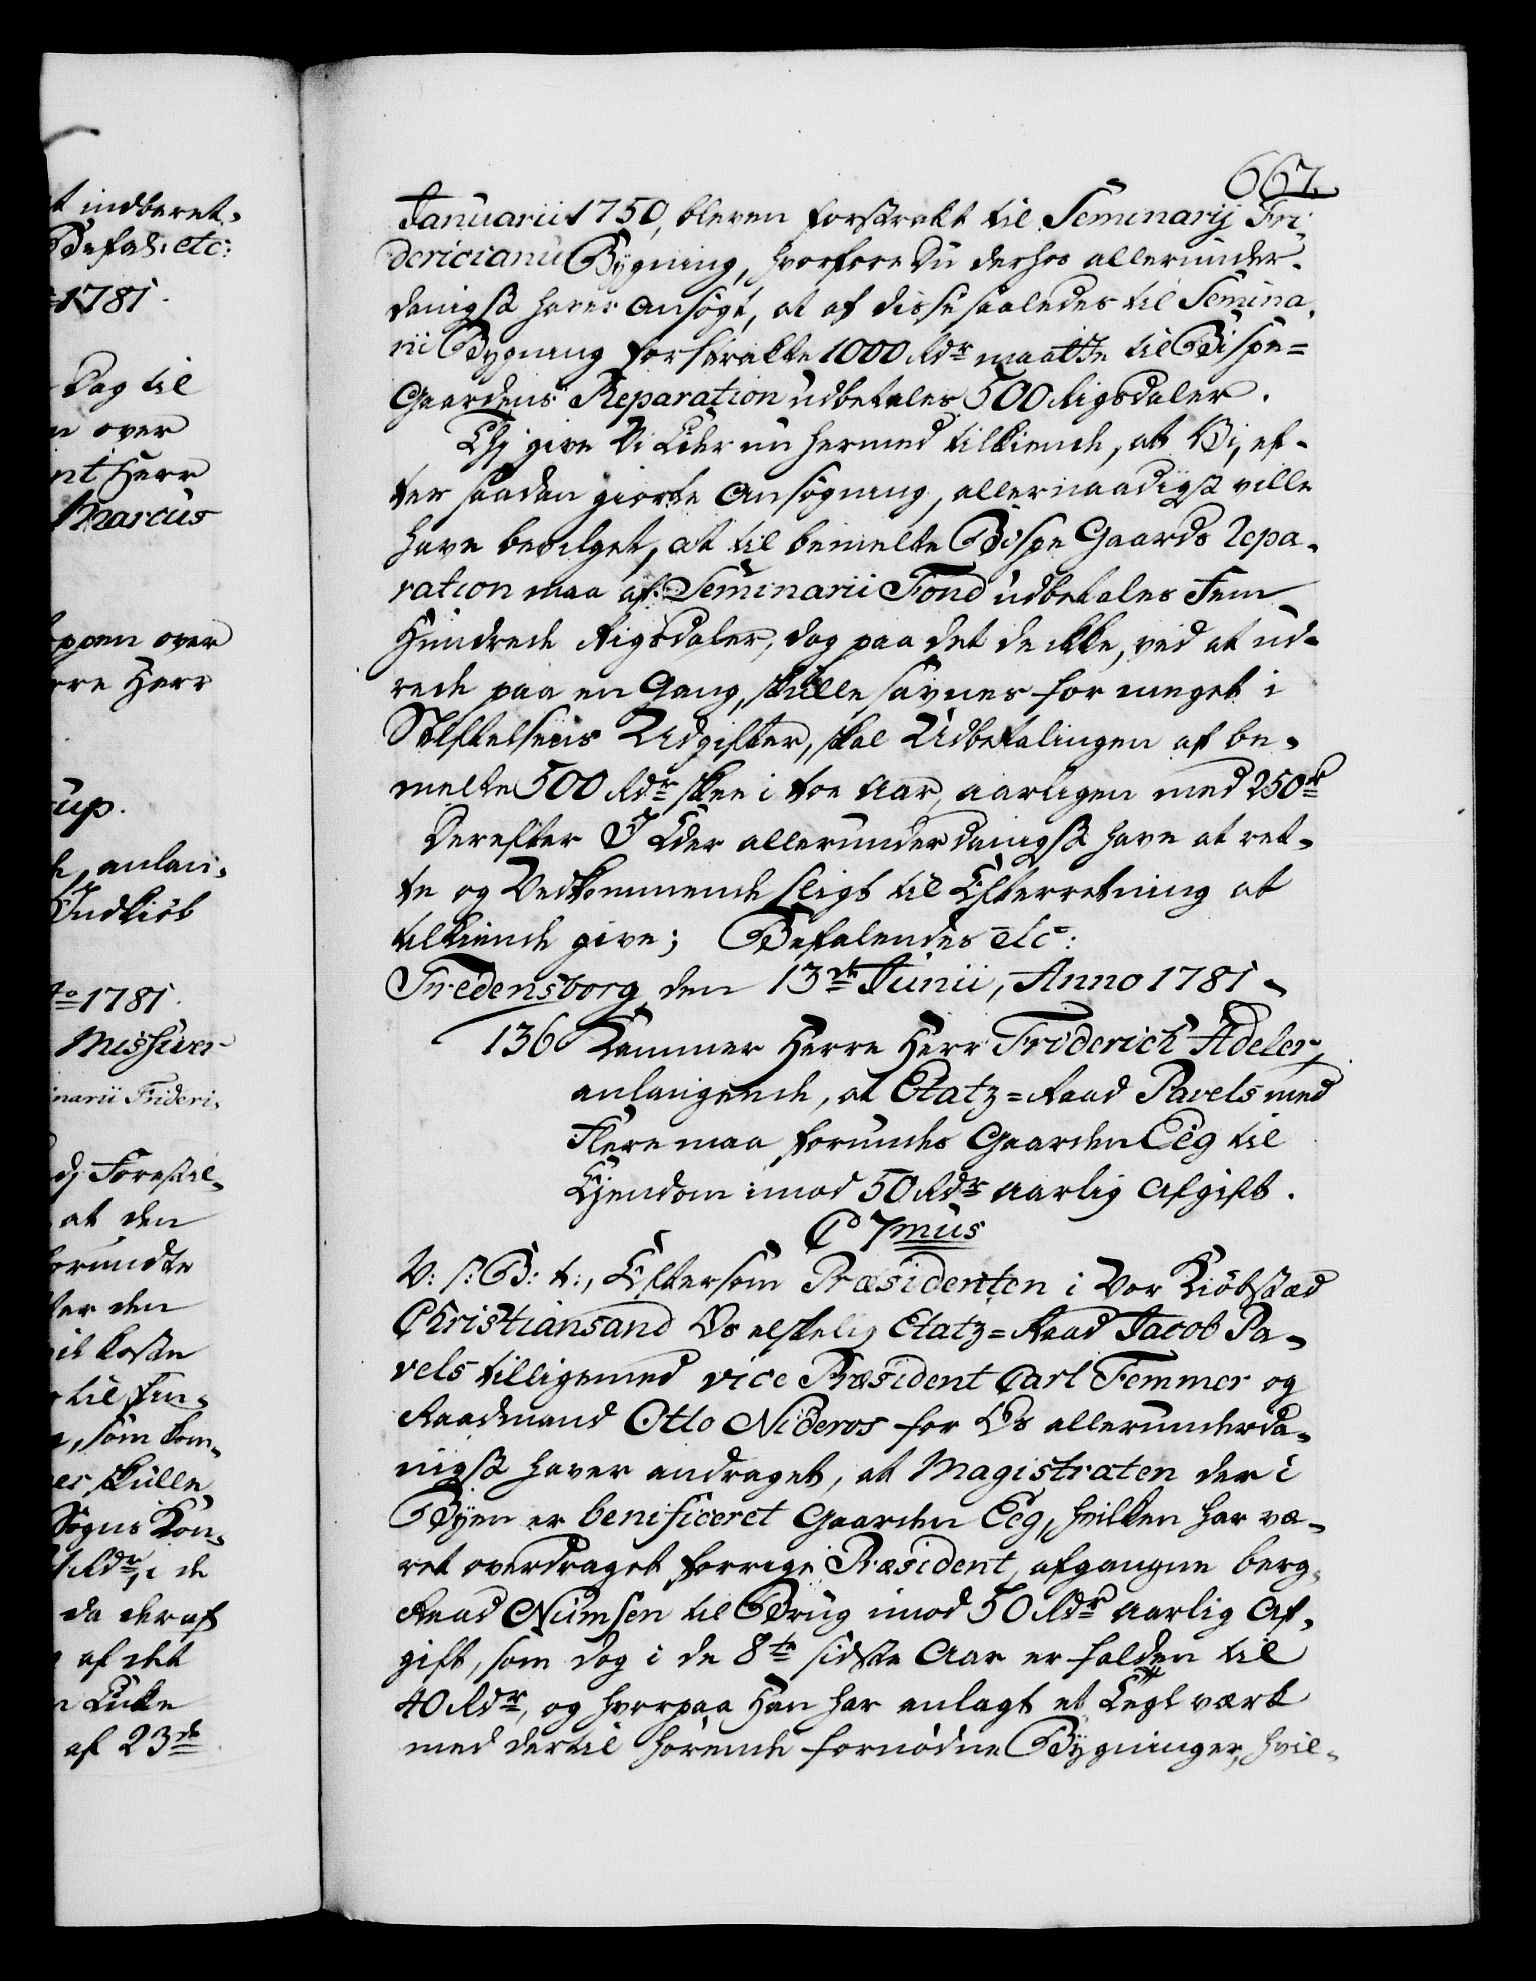 t indberet-
Befal: etc:
1781.
Dag til
n over
nt Herr
Marcus
ppen over
rre Herr
rup.
anlan-
Indkiøb
to 1781.
Missiver
inarii Frideri-
dj Forestil-
at den
forundte
ter den
til Kosten
til fin-
, som kom-
er skulle
Sogns Kon-
Rdr, i de
da deraf
af det
n Lukke
af 23de
667.
Januarii 1750, bleven forstrakt til Seminarij Fri-
dericianu Bygning, hvorfore Du derhos allerunder-
danigst haver ansøgt, at af disse saaledes til Semina-
rii Bygning forstrakte 1000 Rdr maatte til Bispe-
Gaardens Reparation udbetales 500 Rigsdaler.
Thj give Vi Eder nu hermed tilkiende, at Vi, ef-
ter saadan giorte Ansøgning, allernaadigst ville
have bevilget, at til bemelte Bispe Gaards Repa-
ration maa af Seminarii Fond udbetales Fem
Hundrede Rigsdaler, dog paa det de ikke, ved at ud-
rede paa en Gang, skulle savnes for meget i
Stiftelsens Udgifter, skal Udbetalingen af be-
melte 500 Rdr skee i toe Aar, aarligen med 250 r
Derefter I Eder allerunderdanigst have at ret-
te og Vedkommende sligt til Efterretning at
tilkiende give; Befalendes etc:
Fredensborg den 13de Junii, Anno 1781
136 Kammer Herre Herr Friderich Adeler,
anlangende, at Etatz-Raad Pavels med
Flere maa forundes Gaarden Eeg til
Ejendom imod 50 Rdr aarlig Afgift.
C 7mus
V: s: G: t:, Eftersom Præsidenten i Vor Kiøbstæd
Christiansand Os elskelig Etatz-Raad Jacob Pa-
vels tilligemed vice Præsident Carl Femmer og
Raadmand Otto Nideros for Os allerunderda-
nigst haver andraget, at Magistraten der i
Byen er benificeret Gaarden Eeg, hvilken har væ-
ret overdraget forrige Præsident, afgangne berg-
Raad Numsen til Brug imod 50 Rdr aarlig Af-
gift, som dog i de 8te sidste Aar er falden til
40 Rdr, og hvorpaa Han har anlagt et Teglværk
med dertil hørende fornødne Bygninger, hvil-